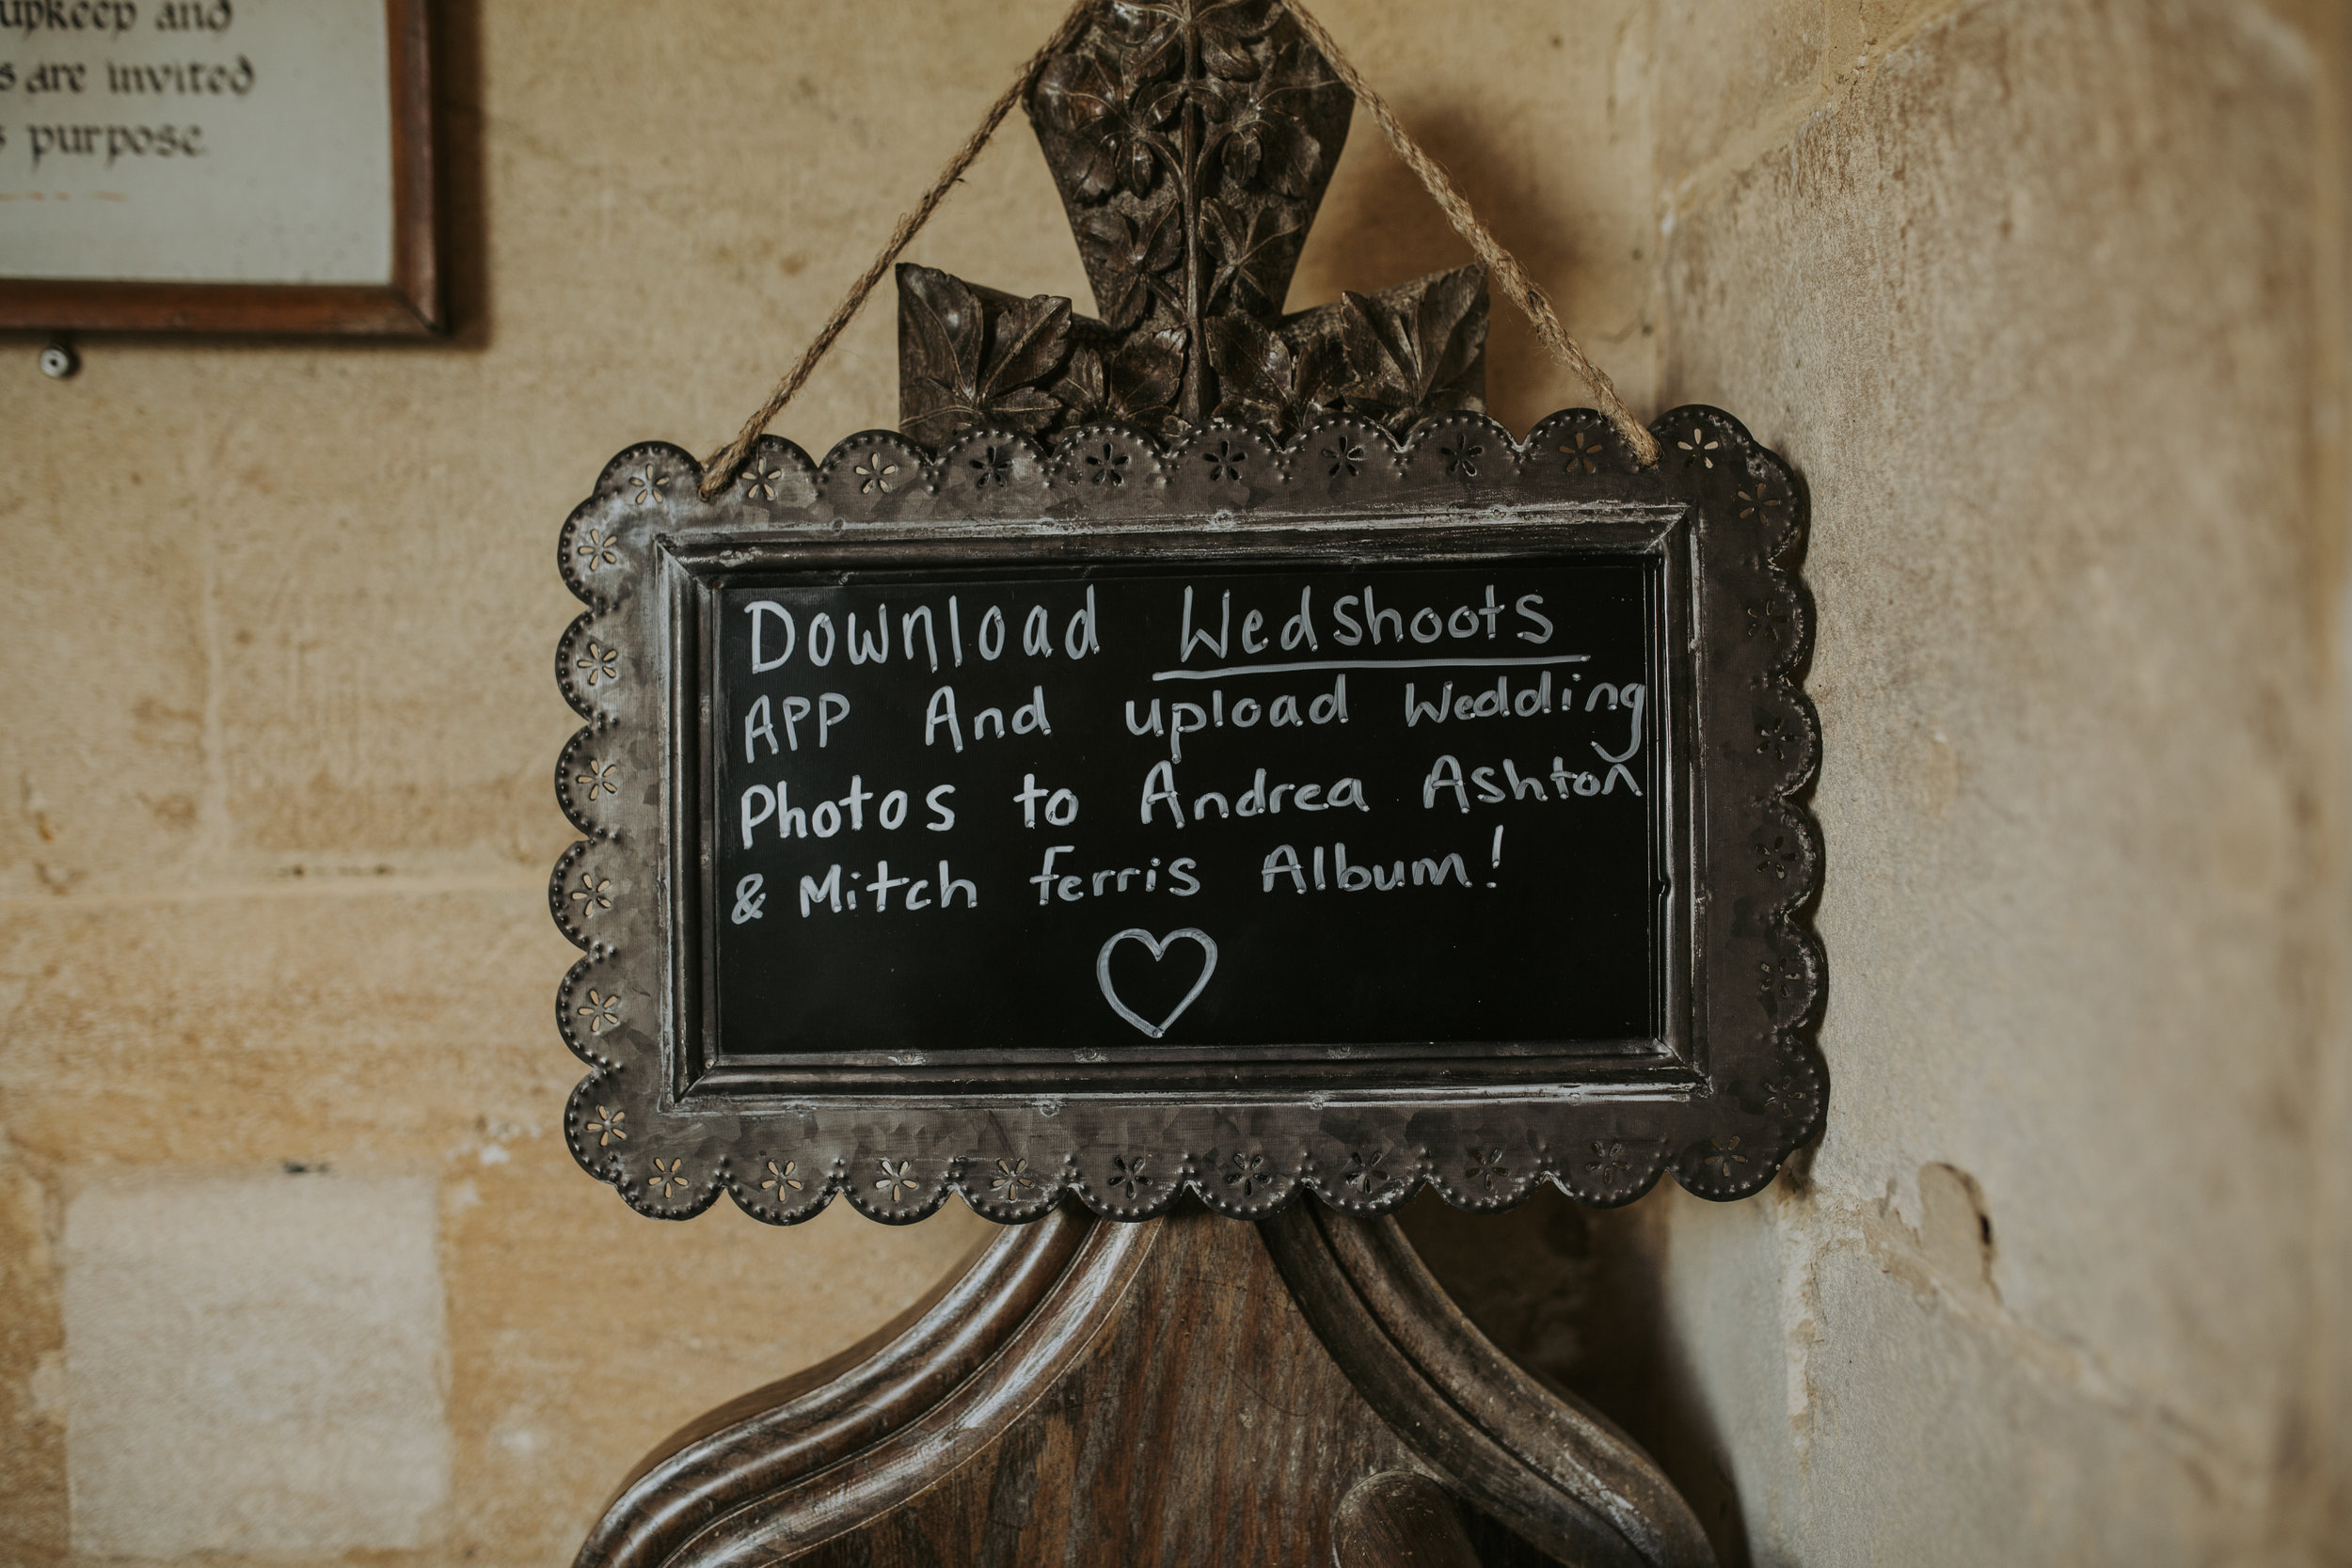 upkeep and
are invited
purpose
Download Wedshoots
APP And upload Wedding
Photos to Andrea Ashton
& Mitch Ferris Album!